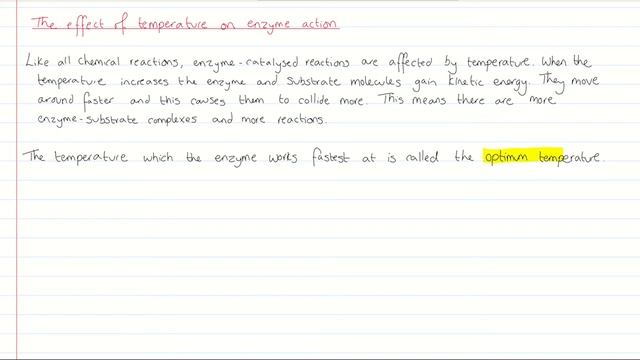 The effect of temperature on enzyme action
Like all chemical reactions, enzyme-catalysed reactions are affected by temperature. When the
temperature increases the enzyme and substrate molecules gain kinetic energy. They move
around faster and this causes them to collide more. This means there are more
enzyme-substrate complexes and more reactions.
The temperature which the enzyme works fastest at is called the optimum temperature.